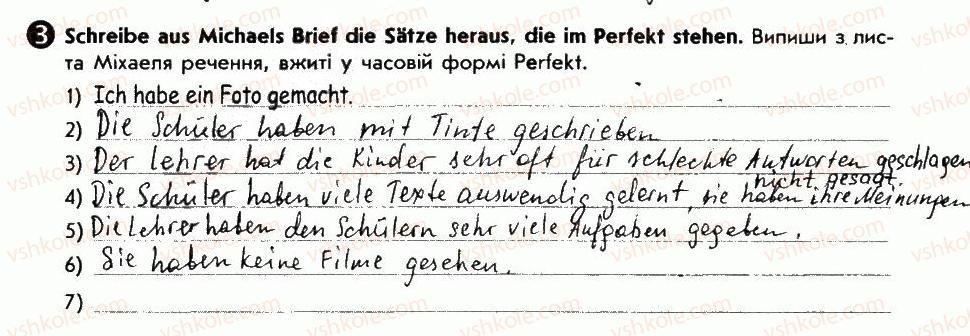 3 Schreibe aus Michaels Brief die Sätze heraus, die im Perfekt stehen. Випиши з лис-
та Міхаеля речення, вжиті у часовій формі Perfekt.
1) Ich habe ein Foto gemacht.
2) Die Schüler haben mit Tinte geschrieben
3) Der lehrer hat die Kinder sehr oft für schlechte Antworten geschlagen
nicht gesagt.
4) Die Schüler haben viele Texte auswendig gelernt, sie haben ihre Meinungen
5) Die Lehrer haben den Schülern sehr viele Aufgaben gegeben.
6) Sie haben keine Filme gesehen.
7)